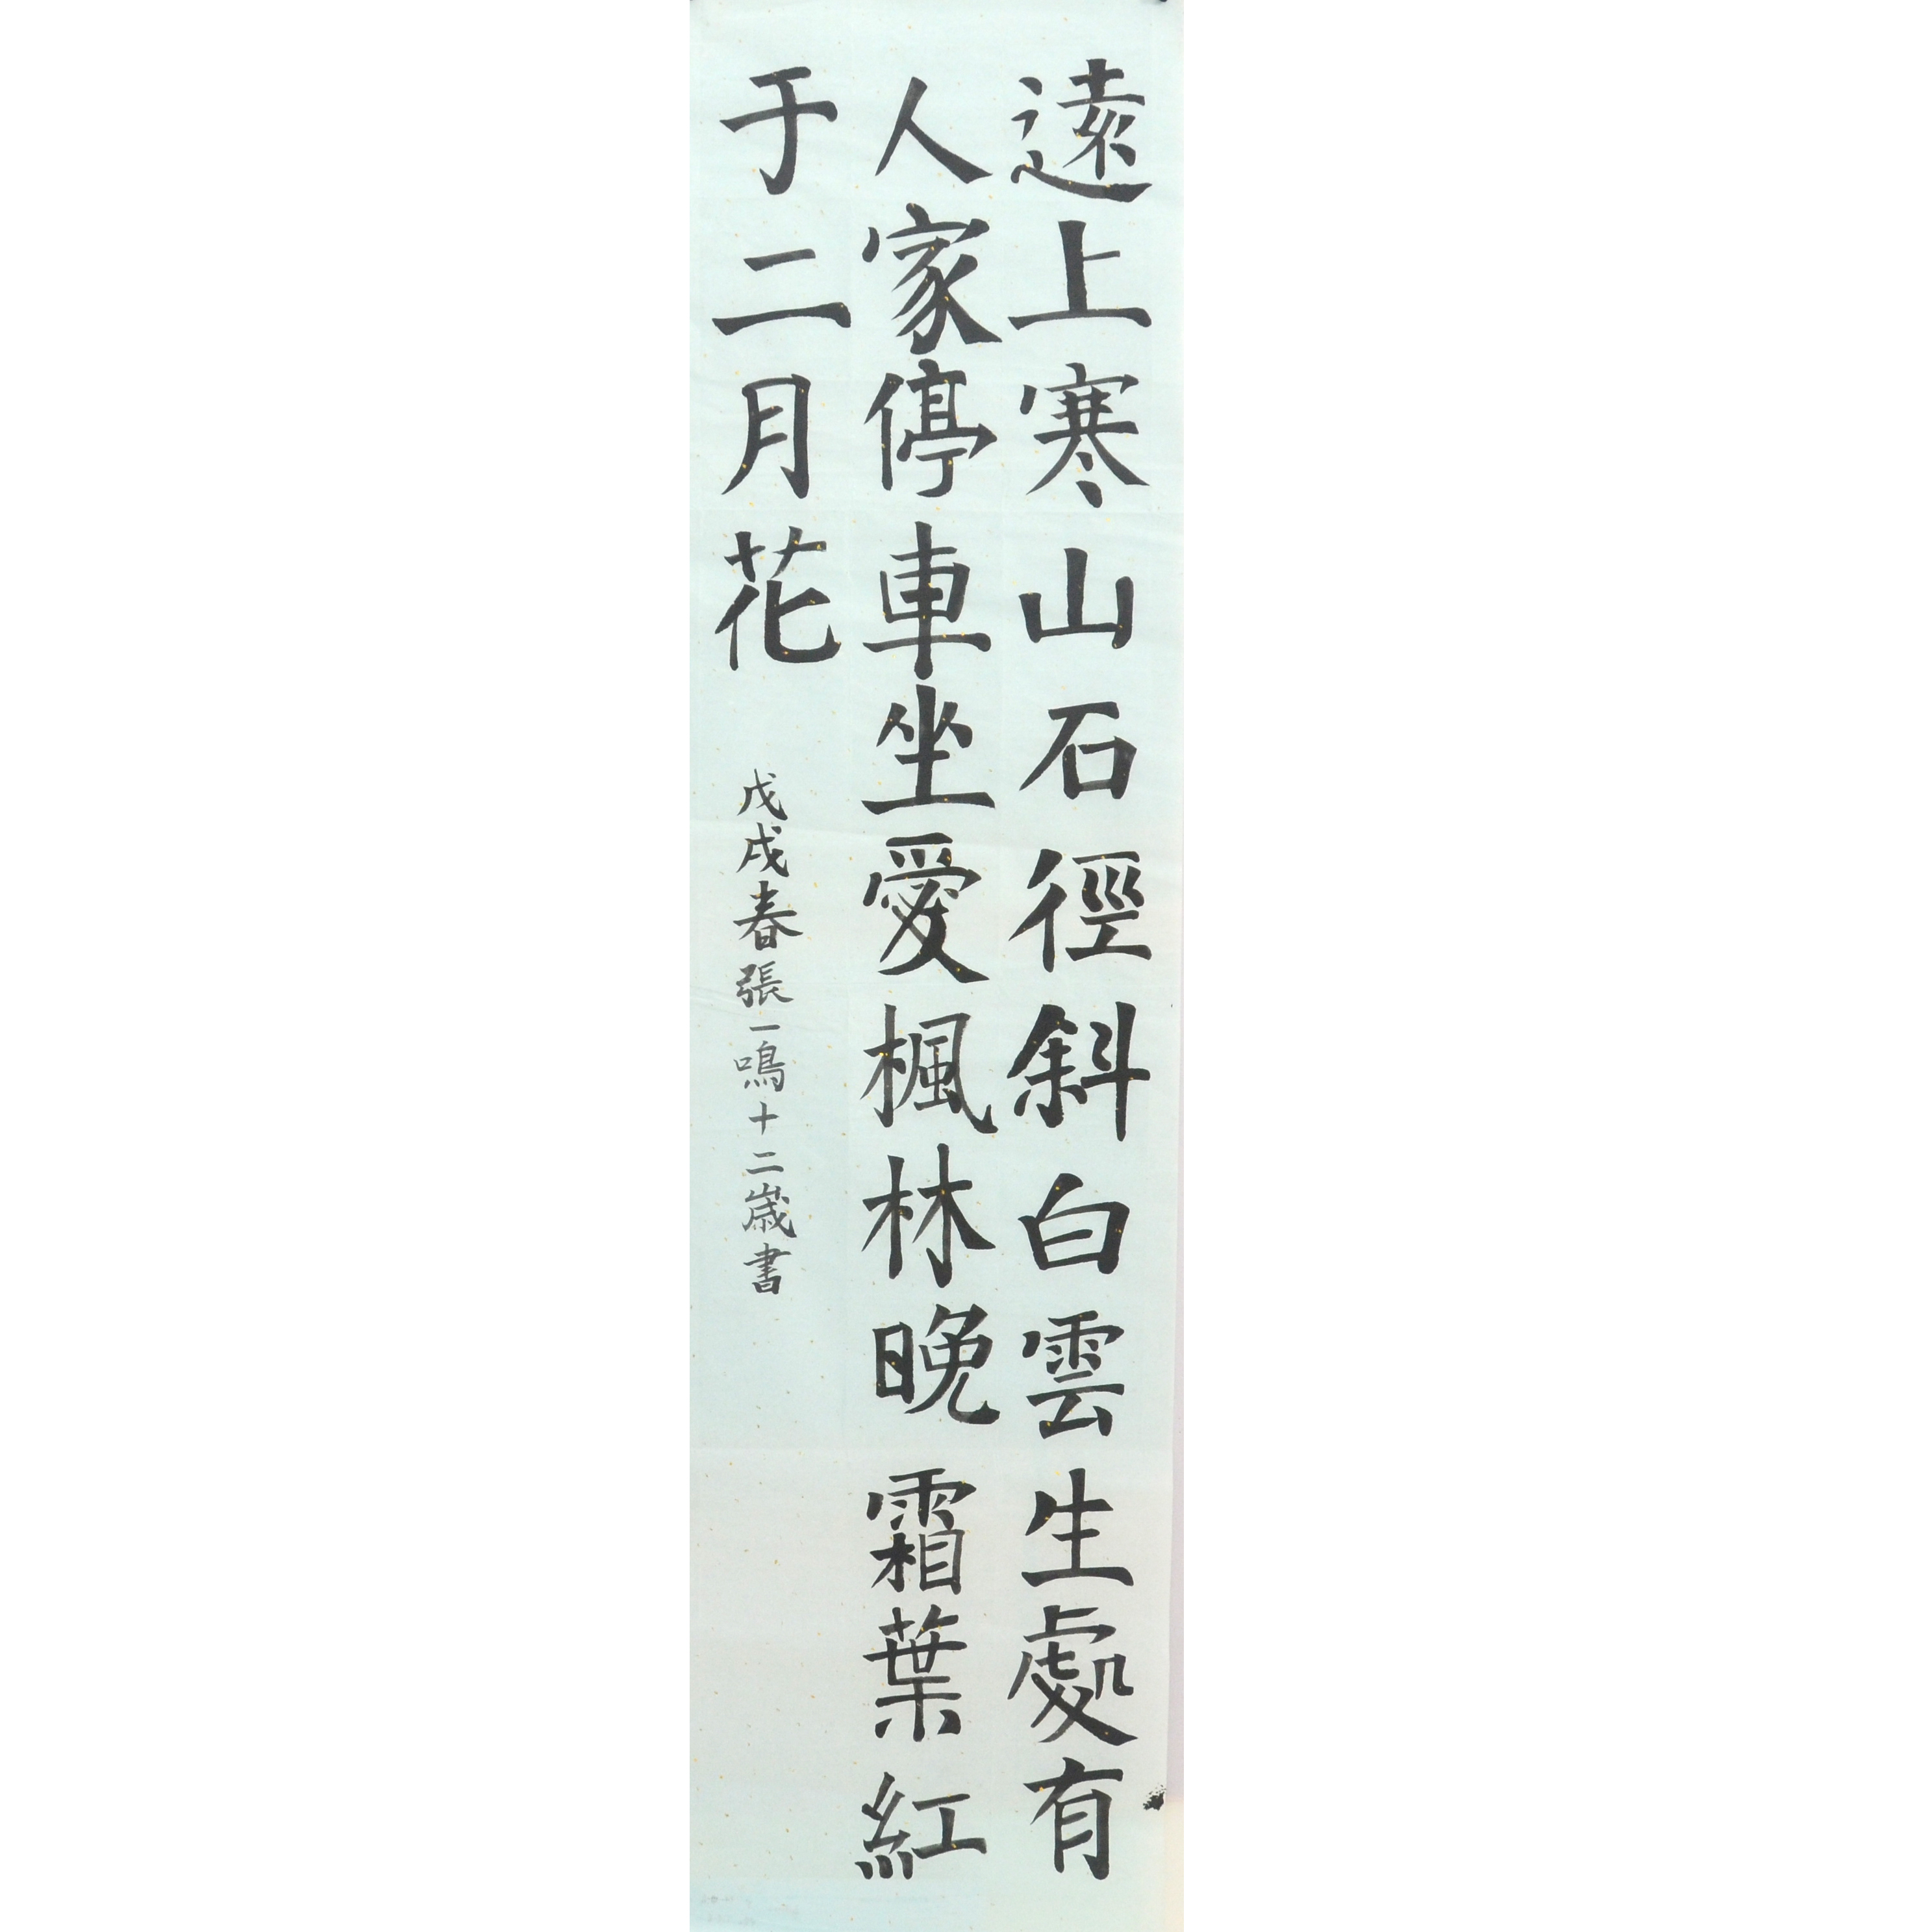 遠上寒山石徑斜白雲生處有
人家停車坐愛楓林晚霜葉紅
于二月花
戊戌春張一鳴十二歲書